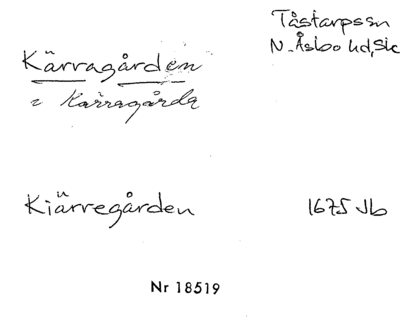 Tåstarpssn
N. Åsbo hd, Sk
Kärragården
i Kärragårda
Kiärregården 1675 Jb
Nr 18519